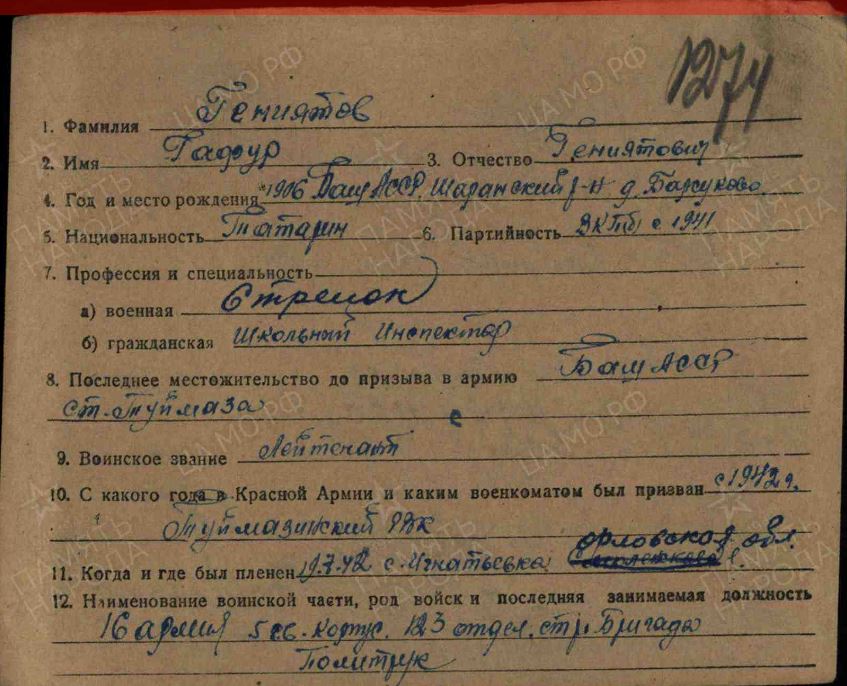 1274
1. Фамилия Гениятов
2. Имя Гафур 3. Отчество Гениятович
4. Год и место рождения 1906 Баш АССР. Шаранский р-н д. Барсуково
5. Национальность Татарин 6. Партийность ВКПб с 1941
7. Профессия и специальность
а) военная Стрелок
б) гражданская Школьный Инспектор
8. Последнее местожительство до призыва в армию Баш АССР
ст. Туймаза
9. Воинское звание Лейтенант
10. С какого года в Красной Армии и каким военкоматом был призван с 1942 г.
Туймазинский РВК
11. Когда и где был пленен 19.7.42 с. Игнатьевка Орловская обл.
12. Наименование воинской части, род войск и последняя занимаемая должность
16 армия 5 св. корпус. 123 отдел. стр. Бригада
Политрук
ЦА МО РФ
ПАМЯТЬ НАРОДА